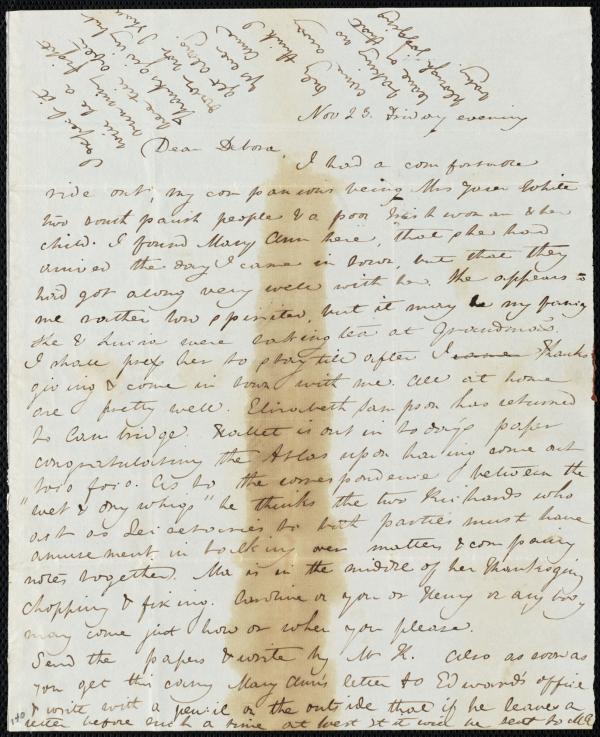 Nov 23. Friday evening
Dear Debora,
I had a comfortable
ride out, my companions being Mrs White
two south parish people & a poor Irish woman & her
child. I found Mary Ann here, that she had
arrived the day I came in town, but that they
had got along very well with her. She appears to
me rather low spirited, but it may be my fancy
She & Lucia were taking tea at Grandma's.
I shall press her to stay till after Thanks
giving & come in town with me. All at home
are pretty well. Elizabeth Sampson has returned
to Cambridge. Hallet is out in to day's paper
congratulating the Atlas upon having come out
As to the correspondence between the
"wet & dry whigs" he thinks the two Richards who
act as Secretaries to both parties must have
amusement in talking over matters & comparing
notes together. Ma is in the middle of her Thanksgiving
chopping & fixing. Caroline or you or Henry or any body
may come just how or when you please.
Send the papers & write by Mr K. Also as soon as
you get this carry Mary Ann's letter to Edward's office
& write with a pencil on the outside that if he leaves a
letter before such a time at West St it will be sent to